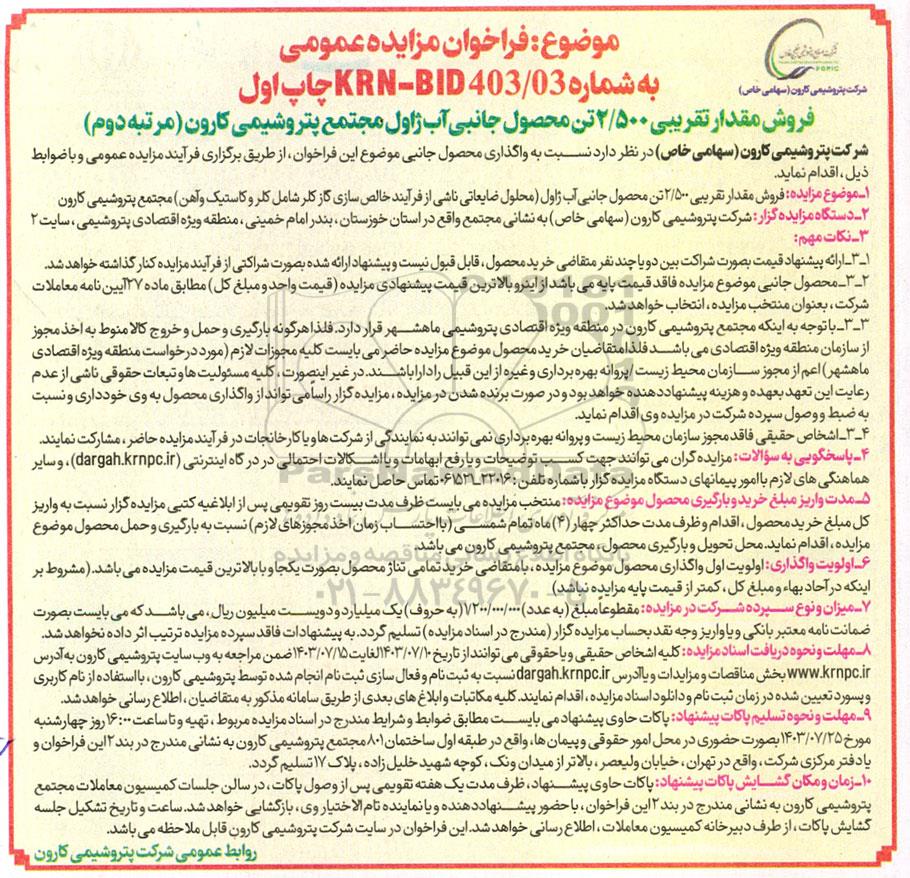 موضوع: فراخوان مزایده عمومی
به شماره KRN-BID 403/03 چاپ اول
PGPIC
شرکت پتروشیمی کارون (سهامی خاص)
فروش مقدار تقریبی ۲/۵۰۰ تن محصول جانبی آب ژاول مجتمع پتروشیمی کارون (مرتبه دوم)
شرکت پتروشیمی کارون (سهامی خاص) در نظر دارد نسبت به واگذاری محصول جانبی موضوع این فراخوان، از طریق برگزاری فرآیند مزایده عمومی و با ضوابط
ذیل، اقدام نماید.
۱ـ موضوع مزایده: فروش مقدار تقریبی ۲/۵۰۰ تن محصول جانبی آب ژاول (محلول ضایعاتی ناشی از فرآیند خالص سازی گاز کلر شامل کلر و کاستیک وآهن) مجتمع پتروشیمی کارون
۲ـ دستگاه مزایده گزار: شرکت پتروشیمی کارون (سهامی خاص) به نشانی مجتمع واقع در استان خوزستان، بندر امام خمینی، منطقه ویژه اقتصادی پتروشیمی، سایت ۲
۳ـ نکات مهم:
۳ـ۱ـ ارائه پیشنهاد قیمت بصورت شراکت بین دو یا چند نفر متقاضی خرید محصول، قابل قبول نیست و پیشنهاد ارائه شده بصورت شراکتی از فرآیند مزایده کنار گذاشته خواهد شد.
۳ـ۲ـ محصول جانبی موضوع مزایده فاقد قیمت پایه می باشد از اینرو بالاترین قیمت پیشنهادی مزایده (قیمت واحد و مبلغ کل) مطابق ماده ۲۷ آیین نامه معاملات
شرکت، بعنوان منتخب مزایده، انتخاب خواهد شد.
۳ـ۳ـ با توجه به اینکه مجتمع پتروشیمی کارون در منطقه ویژه اقتصادی پتروشیمی ماهشهر قرار دارد. فلذا هرگونه بارگیری و حمل و خروج کالا منوط به اخذ مجوز
از سازمان منطقه ویژه اقتصادی می باشد فلذا متقاضیان خرید محصول موضوع مزایده حاضر می بایست کلیه مجوزات لازم (مورد درخواست منطقه ویژه اقتصادی
ماهشهر) اعم از مجوز سازمان محیط زیست / پروانه بهره برداری و غیره از این قبیل را دارا باشند. در غیر اینصورت، کلیه مسئولیت ها و تبعات حقوقی ناشی از عدم
رعایت این تعهد بعهده و هزینه پیشنهاد دهنده خواهد بود و در صورت برنده شدن در مزایده، مزایده گزار راساً می تواند از واگذاری محصول به وی خودداری و نسبت
به ضبط و وصول سپرده شرکت در مزایده وی اقدام نماید.
۳ـ۴ـ اشخاص حقیقی فاقد مجوز سازمان محیط زیست و پروانه بهره برداری نمی توانند به نمایندگی از شرکت ها و یا کارخانجات در فرآیند مزایده حاضر، مشارکت نمایند.
۴ـ پاسخگویی به سؤالات: مزایده گران می توانند جهت کسب توضیحات و یا رفع ابهامات و یا اشکالات احتمالی در در گاه اینترنتی (dargah.krnpc.ir)، و سایر
هماهنگی های لازم با امور پیمانهای دستگاه مزایده گزار با شماره تلفن: ۲۲۰۱۶-۰۶۱۵۲۱ تماس حاصل نمایند.
۵ـ مدت واریز مبلغ خرید و بارگیری محصول موضوع مزایده: منتخب مزایده می بایست ظرف مدت بیست روز تقویمی پس از ابلاغیه کتبی مزایده گزار نسبت به واریز
کل مبلغ خرید محصول، اقدام و ظرف مدت حداکثر چهار (۴) ماه تمام شمسی (با احتساب زمان اخذ مجوزهای لازم) نسبت به بارگیری و حمل محصول موضوع
مزایده، اقدام نماید. محل تحویل و بارگیری محصول، مجتمع پتروشیمی کارون می باشد.
۶ـ اولویت واگذاری: اولویت اول واگذاری محصول موضوع مزایده، با متقاضی خرید تمامی تناژ محصول بصورت یکجا و با بالاترین قیمت مزایده می باشد. (مشروط بر
اینکه در آحاد بهاء و مبلغ کل، کمتر از قیمت پایه مزایده نباشد)
۷ـ میزان و نوع سپرده شرکت در مزایده: مقطوعا مبلغ (به عدد) ۱/۲۰۰/۰۰۰/۰۰۰ (به حروف) یک میلیارد و دویست میلیون ریال، می باشد که می بایست بصورت
ضمانت نامه معتبر بانکی و یا واریز وجه نقد بحساب مزایده گزار (مندرج در اسناد مزایده) تسلیم گردد. به پیشنهادات فاقد سپرده مزایده ترتیب اثر داده نخواهد شد.
۸ـ مهلت و نحوه دریافت اسناد مزایده: کلیه اشخاص حقیقی و یا حقوقی می توانند از تاریخ ۱۴۰۳/۰۷/۱۰ لغایت ۱۴۰۳/۰۷/۱۵ ضمن مراجعه به وب سایت پتروشیمی کارون به آدرس
www.krnpc.ir بخش مناقصات و مزایدات و یا آدرس dargah.krnpc.ir نسبت به ثبت نام و فعال سازی ثبت نام انجام شده توسط پتروشیمی کارون، با استفاده از نام کاربری
و پسورد تعیین شده در زمان ثبت نام و دانلود اسناد مزایده، اقدام نمایند. کلیه مکاتبات و ابلاغ های بعدی از طریق سامانه مذکور به متقاضیان، اطلاع رسانی خواهد شد.
۹ـ مهلت و نحوه تسلیم پاکات پیشنهاد: پاکات حاوی پیشنهاد می بایست مطابق ضوابط و شرایط مندرج در اسناد مزایده مربوط، تهیه و تا ساعت ۱۶:۰۰ روز چهارشنبه
مورخ ۱۴۰۳/۰۷/۲۵ بصورت حضوری در محل امور حقوقی و پیمان ها، واقع در طبقه اول ساختمان ۸۰۱ مجتمع پتروشیمی کارون به نشانی مندرج در بند ۲ این فراخوان و
یا دفتر مرکزی شرکت، واقع در تهران، خیابان ولیعصر، بالاتر از میدان ونک، کوچه شهید خلیل زاده، پلاک ۱۷ تسلیم گردد.
۱۰ـ زمان و مکان گشایش پاکات پیشنهاد: پاکات حاوی پیشنهاد، ظرف مدت یک هفته تقویمی پس از وصول پاکات، در سالن جلسات کمیسیون معاملات مجتمع
پتروشیمی کارون به نشانی مندرج در بند ۲ این فراخوان، با حضور پیشنهاد دهنده و یا نماینده تام الاختیار وی، بازگشایی خواهد شد. ساعت و تاریخ تشکیل جلسه
گشایش پاکات، از طرف دبیرخانه کمیسیون معاملات، اطلاع رسانی خواهد شد. این فراخوان در سایت شرکت پتروشیمی کارون قابل ملاحظه می باشد.
روابط عمومی شرکت پتروشیمی کارون
ParsNamadData
پایگاه اطلاع رسانی مناقصه و مزایده
۰۲۱-۸۸۳۴۹۶۷۰-۵